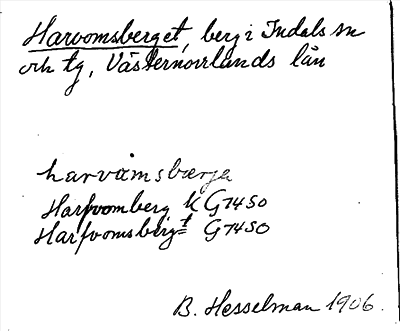 Harvomsberget, berg i Indals sn
och tg, Västernorrlands län
harvåmsbærja
Harfvomberg k G7450
Harfvomsbergt G7450
B. Hesselman 1906.